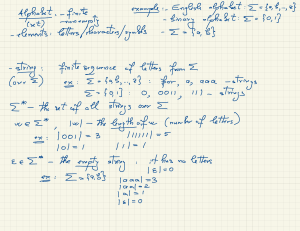 Alphabet: - finite
(set) - nonempty
- elements: letters/characters/symbols
example: - English alphabet: Σ = {a, b, .., z}
- Binary alphabet: Σ = {0,1}
- Σ = {a, b}
- string: finite sequence of letters from Σ
(over Σ) ex: Σ = {a, b, .., z}: for, a, aaa - strings
Σ = {0,1}: 0, 0011, 111 - strings
Σ* - the set of all strings over Σ
w ∈ Σ*, |w| - the length of w (number of letters)
ex: |001| = 3 |11111| = 5
|0| = 1 |1| = 1
ε ∈ Σ* - the empty string: it has no letters
|ε| = 0
ex: Σ = {a, b} |aaa| = 3
|aa| = 2
|a| = 1
|ε| = 0